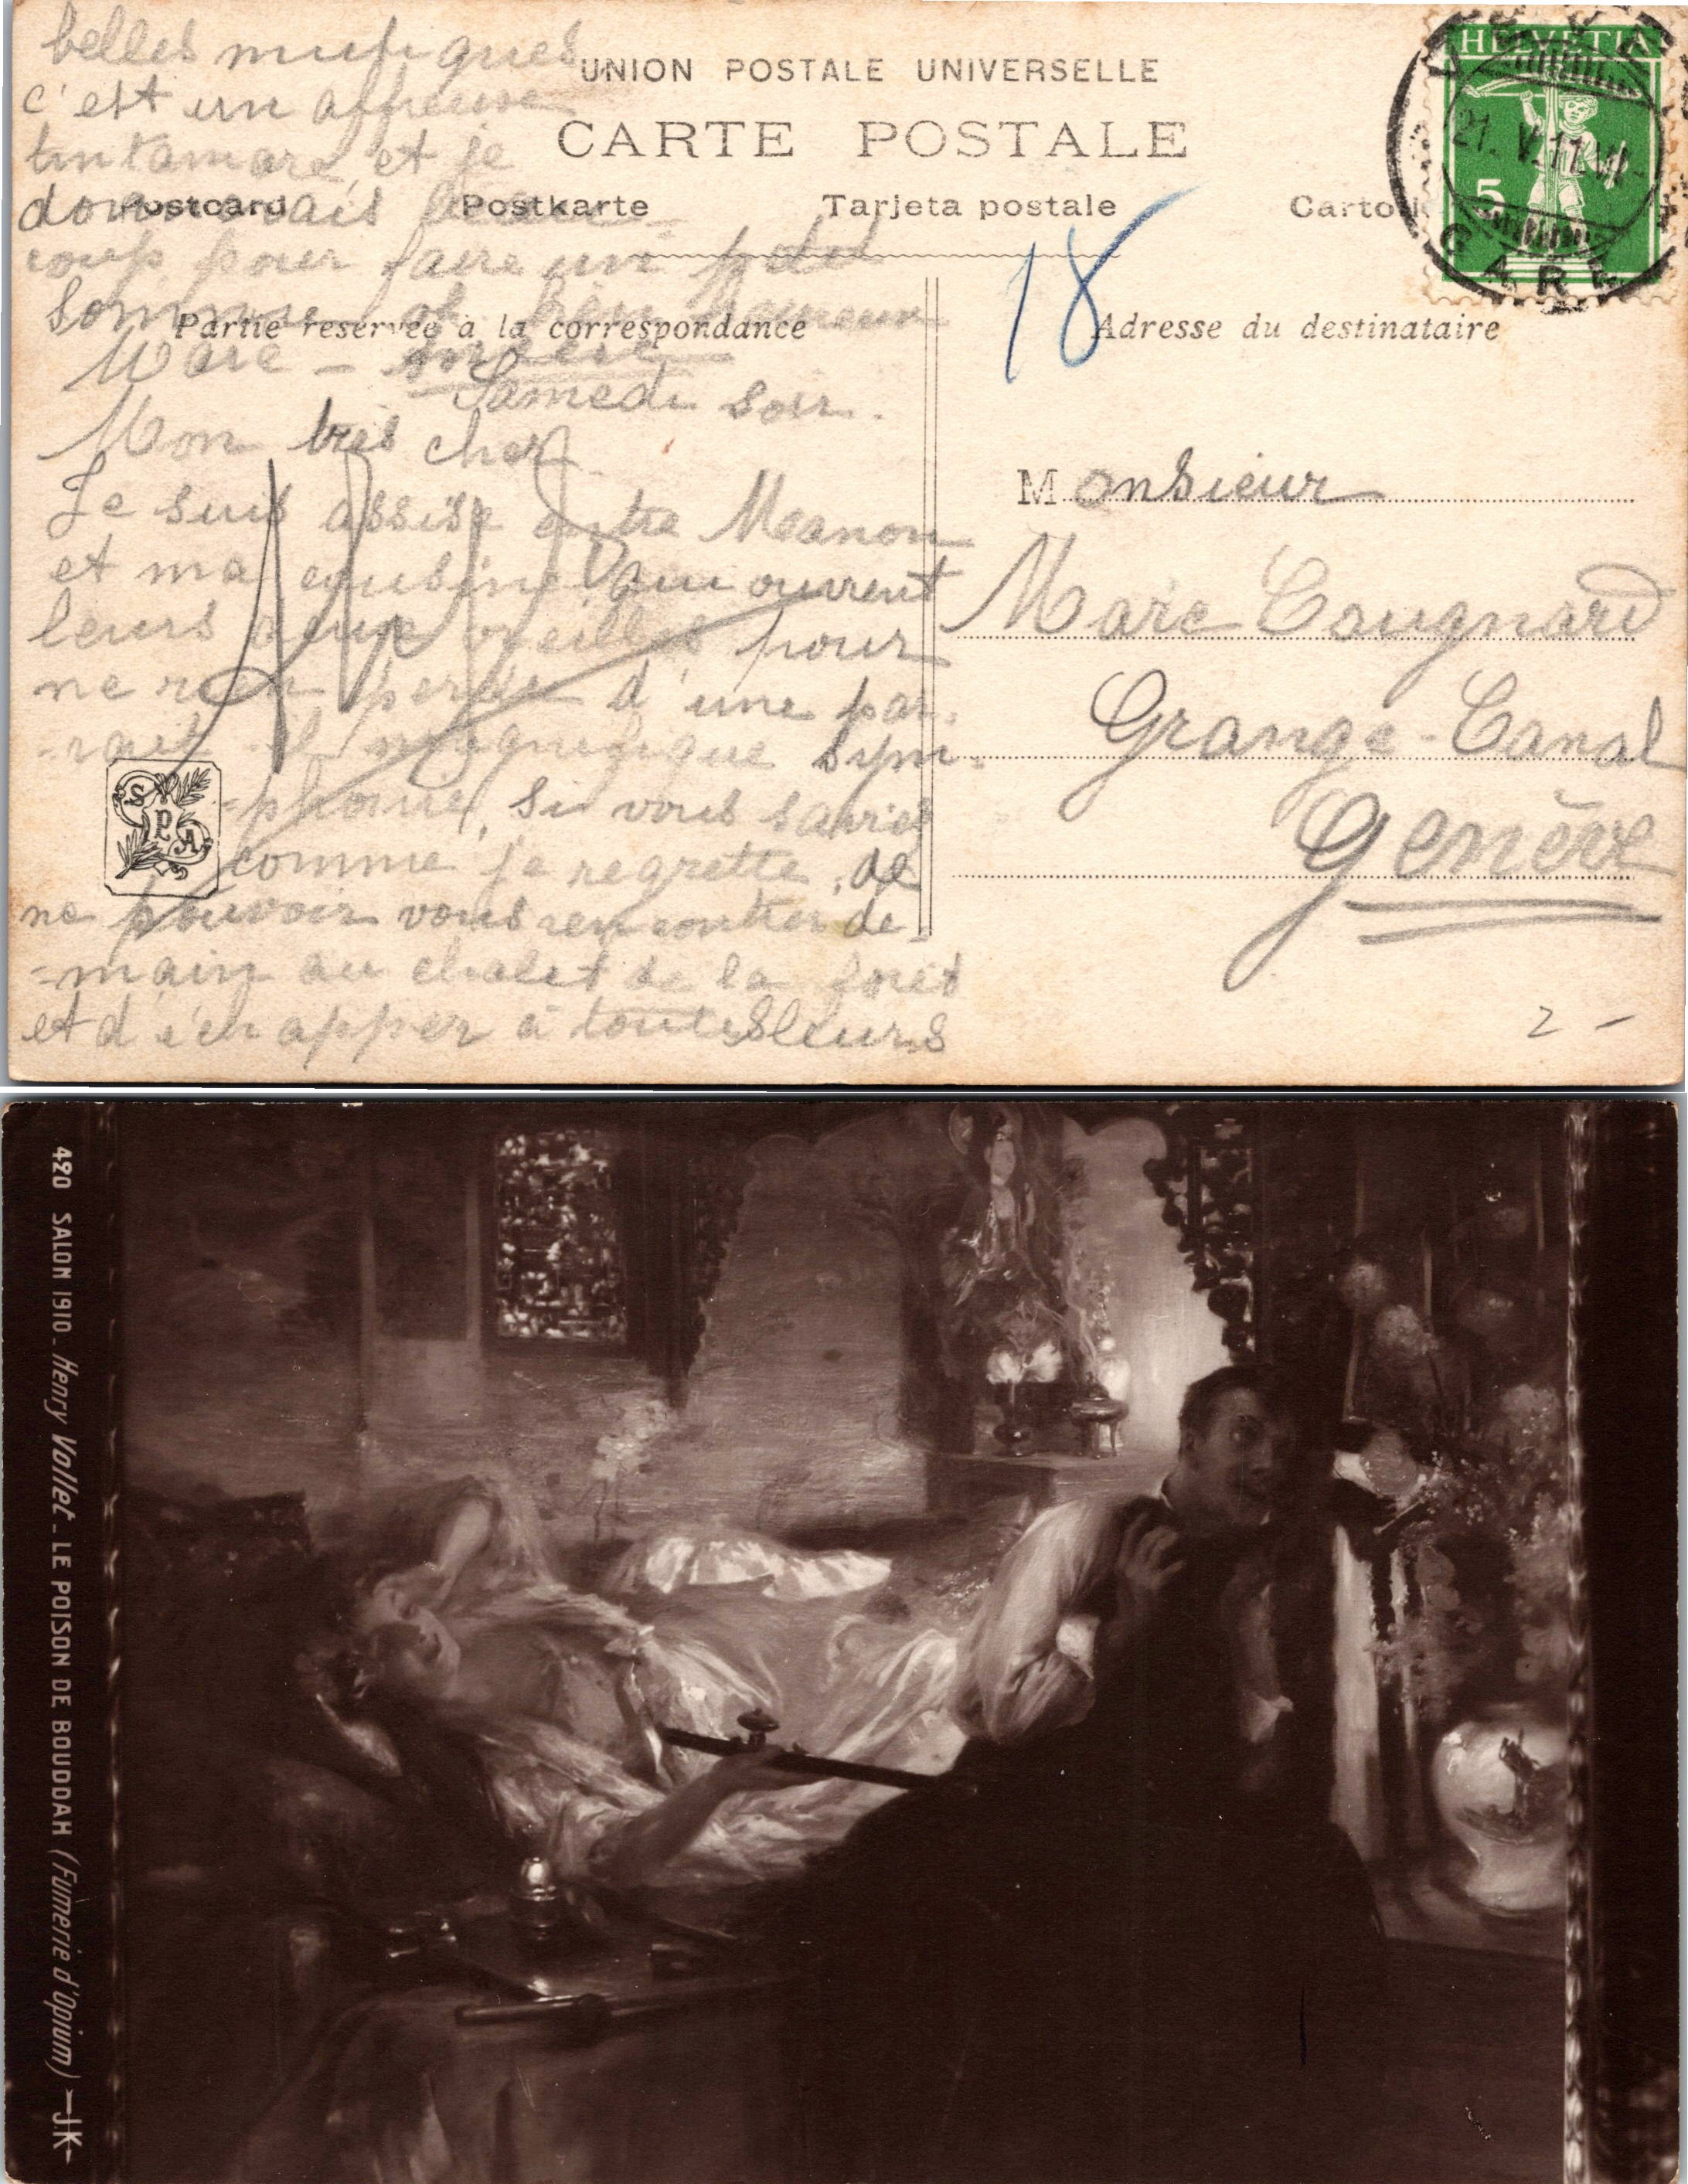 belles musiques
c'est un affreuse
tintamare et je
donnerais beau-
coup pour faire un petit
somme
Marc -
UNION POSTALE UNIVERSELLE
CARTE POSTALE
Postcard Postkarte Tarjeta postale Carto
Partie reservée à la correspondance
18
Adresse du destinataire
HELVETIA
5
21. V. 11. VI-
GARE
Samedi soir.
Mon très cher
Je suis assise entre Manon
et ma cousine qui ouvrent
leurs deux oreilles pour
ne rien perdre d'une pa-
-rait-il magnifique sym-
-phonie, si vous saviez
comme je regrette de
ne pouvoir vous rencontrer de-
-main au chalet de la forêt
et d'échapper à toutes leurs
SPA
Monsieur
Marc Cougnard
Grange-Canal
Genève
2 -
420 SALON 1910 - Henry Vollet - LE POISON DE BOUDDAH (Fumerie d'Opium) J.K